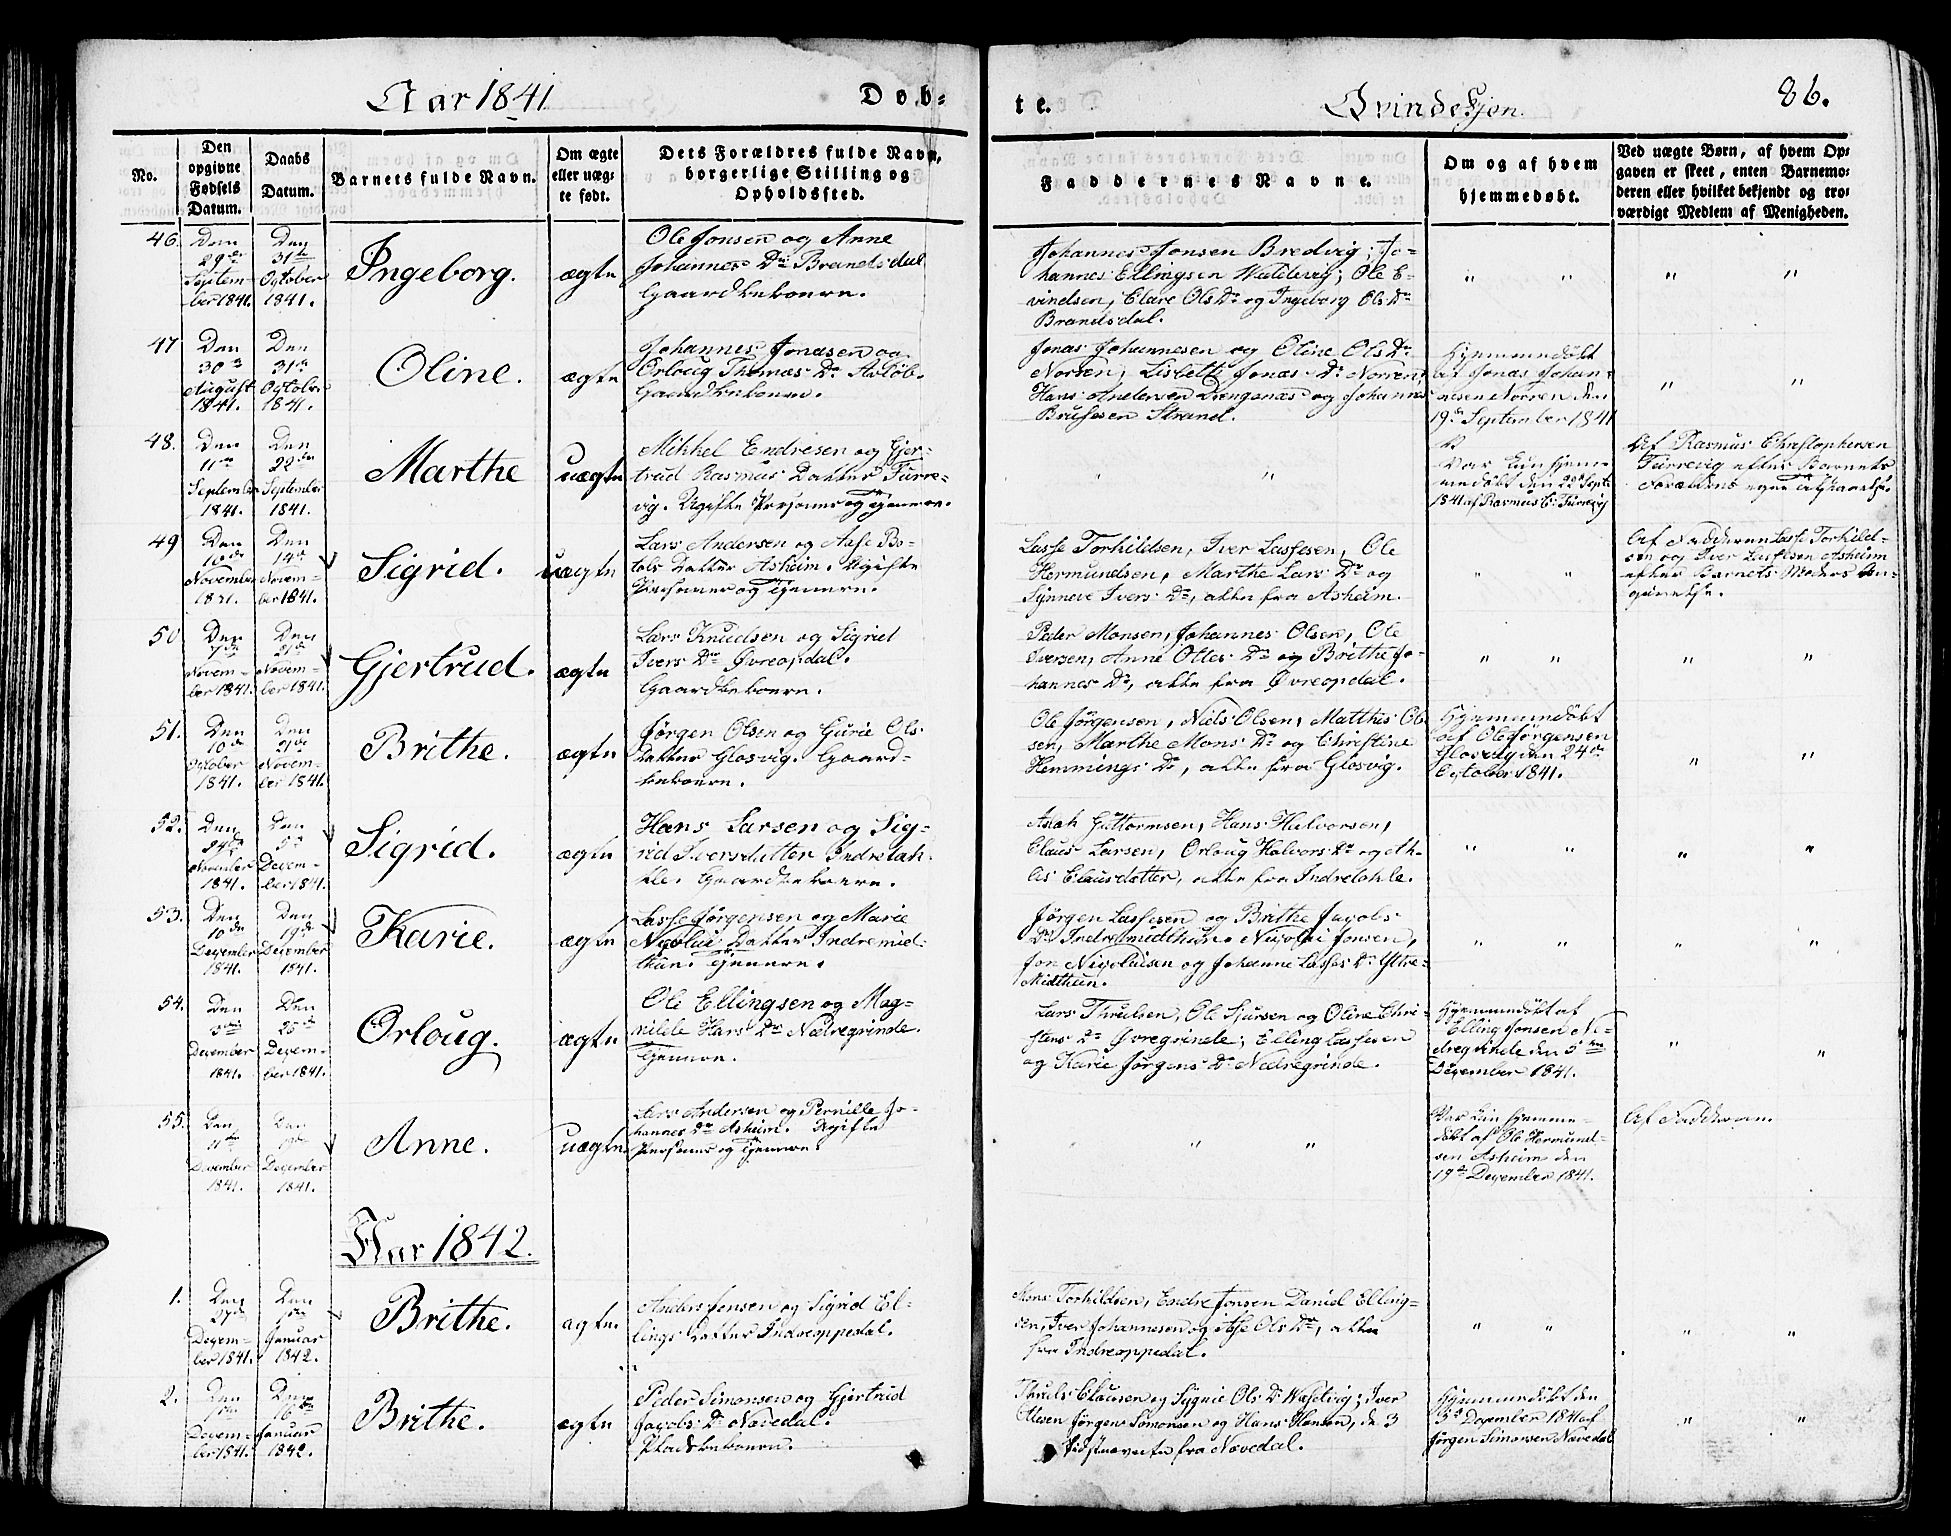 Aar 1841
Døb-
te.
Qvindekjøn.
86.
No.
Den opgivne Fødsels Datum.
Daabs Datum.
Barnets fulde Navn.
Om ægte eller uægte født.
Dets Forældres fulde Navn, borgerlige Stilling og Opholdssted.
Faddernes Navne.
Om og af hvem hjemmedøbt.
Ved uægte Børn, af hvem Op-
gaven er skeet, enten Barnemo-
deren eller hvilket bekjendt og tro-
værdigt Medlem af Menigheden.
46.
Den
29de
Septem-
ber 1841.
Den
31te
October
1841.
Ingeborg.
ægte
Ole Jonsen og Anne
Johannes Dr Brandsdal
Gaardbeboere.
Johannes Jonsen Bredvig; Jo-
hannes Ellingsen; Ole E-
vindsen, Ols Dr og Ingeborg Ols Dr
Brandsdal.
" " " "
47
Den
30te
August
1841.
Den
31te
October
1841.
Oline.
ægte
Johannes Jonasen og
Orloug Thomas Dr
Gaardbeboere.
Jonas Johannesen og Oline Ols Dr
Norren, Lisbeth Jonas Dr Norren,
Hans Andersen og Johannes
Strand.
Hjemmedøbt
af Jonas Johan-
nesen Norren den
19de September 1841
" "
48.
Den
11te
September
1841.
Den
22de
September
1841.
Marthe
uægte
Mikkel Endresen og Gjer-
trud Rasmus Datter Furre-
vig. Ugifte Personer og tjenere.
" "
Var kun hjem-
medøbt den 22de Septr
1841 af Rasmus C. Furrevig
Af Rasmus Christophersen
Furrevig efter Barnets
Forældres egen
49
Den
10de
November
1841.
Den
14de
Novem-
ber 1841.
Sigrid.
uægte
Lars Andersen og Aase Bo-
tols Datter Asheim. Ugifte
Personer og tjenere.
Lasse Torkildsen, Iver Lassesen, Ole
Hermundsen, Marthe Lars Dr og
Synneve Ivers Dr, alle fra Asheim.
" "
Af Fadderen Lasse Torkild-
sen og Iver Lassesen Asheim
efter Barnets Moders An-
givelse.
50
Den
7de
Novem-
ber 1841.
Den
21de
Novem-
ber 1841.
Gjertrud.
ægte
Lars Knudsen og Sigrid
Ivers Dr Øvreopdal.
Gaardbeboere.
Peder Monsen, Johannes Olsen, Ole
Iversen, Anne Ottes Dr og Brithe Jo-
hannes Dr, alle fra Øvreopdal.
" " " "
51.
Den
10de
October
1841.
Den
21de
Novem-
ber 1841.
Brithe.
ægte
Jørgen Olsen og Gurie Ols
Datter Glosvig. Gaard-
beboere.
Ole Jørgensen, Niels Olsen, Matthis Ol-
sen, Marthe Mons Dr og Christine
Hemmings Dr, alle fra Glosvig.
Hjemmedøbt
af Ole Jørgensen
Glosvig den 24de
October 1841.
" "
52.
Den
24de
November
1841.
Den
5te
Decem-
ber 1841.
Sigrid.
ægte
Hans Larsen og Sig-
rid Iversdatter Indretak-
kle. Gaardbeboere.
Guttormsen, Hans Halvorsen,
Claus Larsen, Orloug Halvors Dr og
Clausdatter, alle fra Indretakle.
" " " "
53.
Den
10de
December
1841.
Den
19de
December
1841.
Karie.
ægte
Lasse Jørgensen og Marie
Nicolai Datter Indremid-
thun. Tjenere.
Jørgen Lassesen og Brithe Jacobs
Dr Indremidthun. Nicolai Jonsen,
Jon Nicolaisen og Johanne Lasses Dr Ytre-
Midthun.
" " " "
54.
Den
3die
December
1841.
Den
25de
Decem-
ber 1841.
Orloug.
ægte
Ole Ellingsen og Mag-
nilde Hans Dr Nedregrinde.
Tjenere.
Lars Thrulsen, Ole Sjursen og Oline Chri-
stens Dr Øvregrinde; Elling Lassesen
og Karie Jørgens Dr Nedregrinde.
Hjemmedøbt af
Elling Jonsen Ne-
dregrinde den 5te
December 1841.
" "
55.
Den
December
1841.
Den
December
1841.
Anne.
uægte.
Lars Andersen og Pernille Jo-
hannes Dr Asheim. Ugifte
Personer og tjenere.
" "
Var kun hjemme-
døbt af Ole Hermund-
sen Asheim den
19de December 1841.
Af Fadderen.
Aar 1842.
1.
Den
27de
Decem-
ber 1841.
Den
Januar
1842.
Brithe.
ægte.
Anders Jensen og Sigrid El-
lings Datter Indreoppedal.
Mons Torkildsen, Endre Jonsen Daniel Elling-
sen, Iver Johannesen og Aase Ols Dr, alle
fra Indreoppedal.
" " " "
2.
Den
Decem-
ber 1841.
Den
16de
Januar
1842.
Brithe.
ægte
Peder Simonsen og Gjertrud
Jacobs Dr Nævedal.
Pladsbeboere.
Thruls Clausen og Sygnie Ols Dr; Iver
Olsen Jørgen Simonsen og Hans Hansen, de 3
sidstnævnte fra Nævedal.
Hjemmedøbt den
3de December 1841 af
Jørgen Simonsen Nævedal
" "